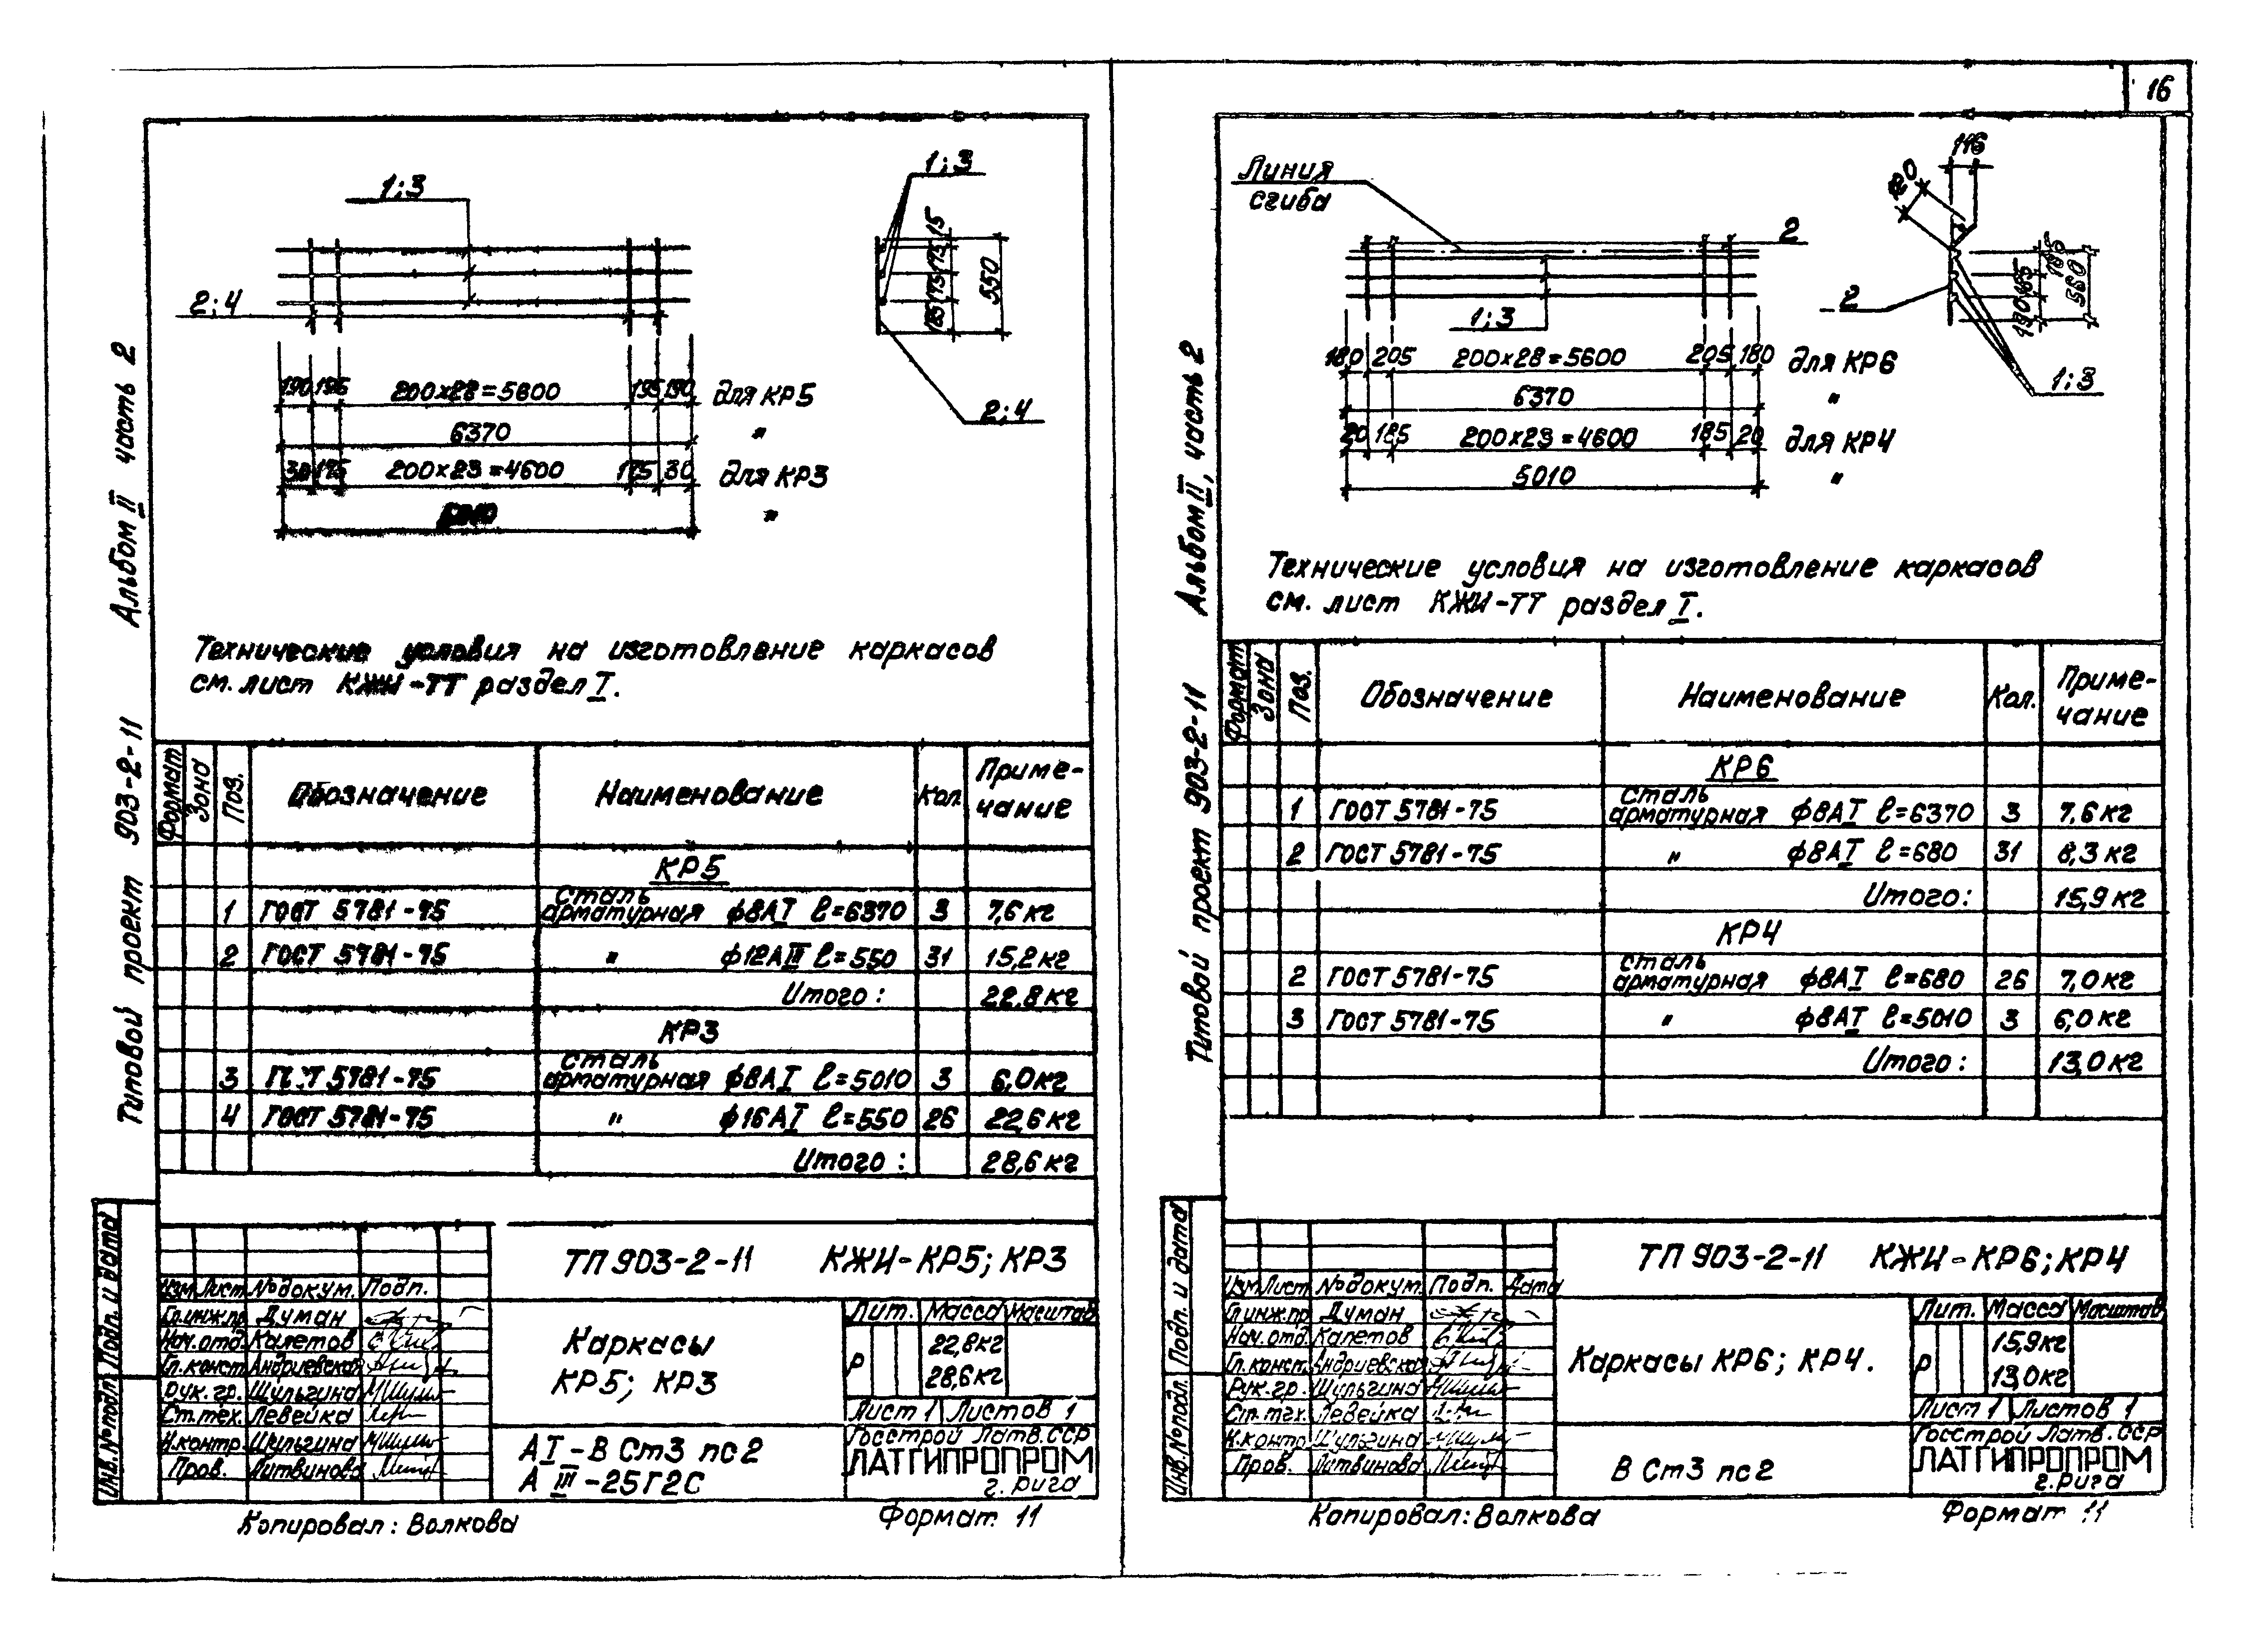 16
Альбом II часть 2
Типовой проект 903-2-11
1;3
1;3
2;4
15
175
175
185
550
2;4
190 195 200×28=5600 195 190 для КР5
6370 "
30 175 200×23=4600 175 30 для КР3
"
Технические условия на изготовление каркасов
см. лист КЖИ-ТТ раздел I.
Формат Зона Поз. Обозначение Наименование Кол. Приме-
чание
КР5
1 ГОСТ 5781-75 сталь арматурная ф8АI ℓ=6370 3 7,6кг
2 ГОСТ 5781-75 " ф12АIII ℓ=550 31 15,2кг
Итого: 22,8кг
КР3
3 ГОСТ 5781-75 сталь арматурная ф8АI ℓ=5010 3 6,0кг
4 ГОСТ 5781-75 " ф16АI ℓ=550 26 22,6кг
Итого: 28,6кг
Инв.№подл. Подп. и дата
ТП 903-2-11 КЖИ-КР5; КР3
Изм Лист №докум. Подп.
Гл.инж.пр. Думан
Нач.отд. Калетов
Гл.конст. Андриевская
Рук.гр. Шульгина
Ст.тех. Левейка
Н.контр. Шульгина
Пров. Литвинова
Каркасы
КР5; КР3
Лит. Масса Масштаб
Р 22,8кг
28,6кг
Лист 1 Листов 1
АI-В Ст3 пс2
АIII-25Г2С
Госстрой Латв.ССР
ЛАТГИПРОПРОМ
г. Рига
Копировал: Волкова
Формат 11
Альбом II, часть 2
Типовой проект 903-2-11
Линия
сгиба
2
116
185
185
190
560
2
1;3
1;3
180 205 200×28=5600 205 180 для КР6
6370 "
20 185 200×23=4600 185 20 для КР4
5010 "
Технические условия на изготовление каркасов
см. лист КЖИ-ТТ раздел I.
Формат Зона Поз. Обозначение Наименование Кол. Приме-
чание
КР6
1 ГОСТ 5781-75 сталь арматурная ф8АI ℓ=6370 3 7,6кг
2 ГОСТ 5781-75 " ф8АI ℓ=680 31 8,3кг
Итого: 15,9кг
КР4
2 ГОСТ 5781-75 сталь арматурная ф8АI ℓ=680 26 7,0кг
3 ГОСТ 5781-75 " ф8АI ℓ=5010 3 6,0кг
Итого: 13,0кг
Инв.№подл. Подп. и дата
ТП 903-2-11 КЖИ-КР6; КР4
Изм Лист №докум. Подп. Дата
Гл.инж.пр. Думан
Нач.отд. Калетов
Гл.конст. Андриевская
Рук.гр. Шульгина
Ст.тех. Левейка
Н.контр. Шульгина
Пров. Литвинова
Каркасы КР6; КР4.
Лит. Масса Масштаб
Р 15,9кг
13,0кг
Лист 1 Листов 1
В Ст3 пс2
Госстрой Латв. ССР
ЛАТГИПРОПРОМ
г. Рига
Копировал: Волкова
Формат 11